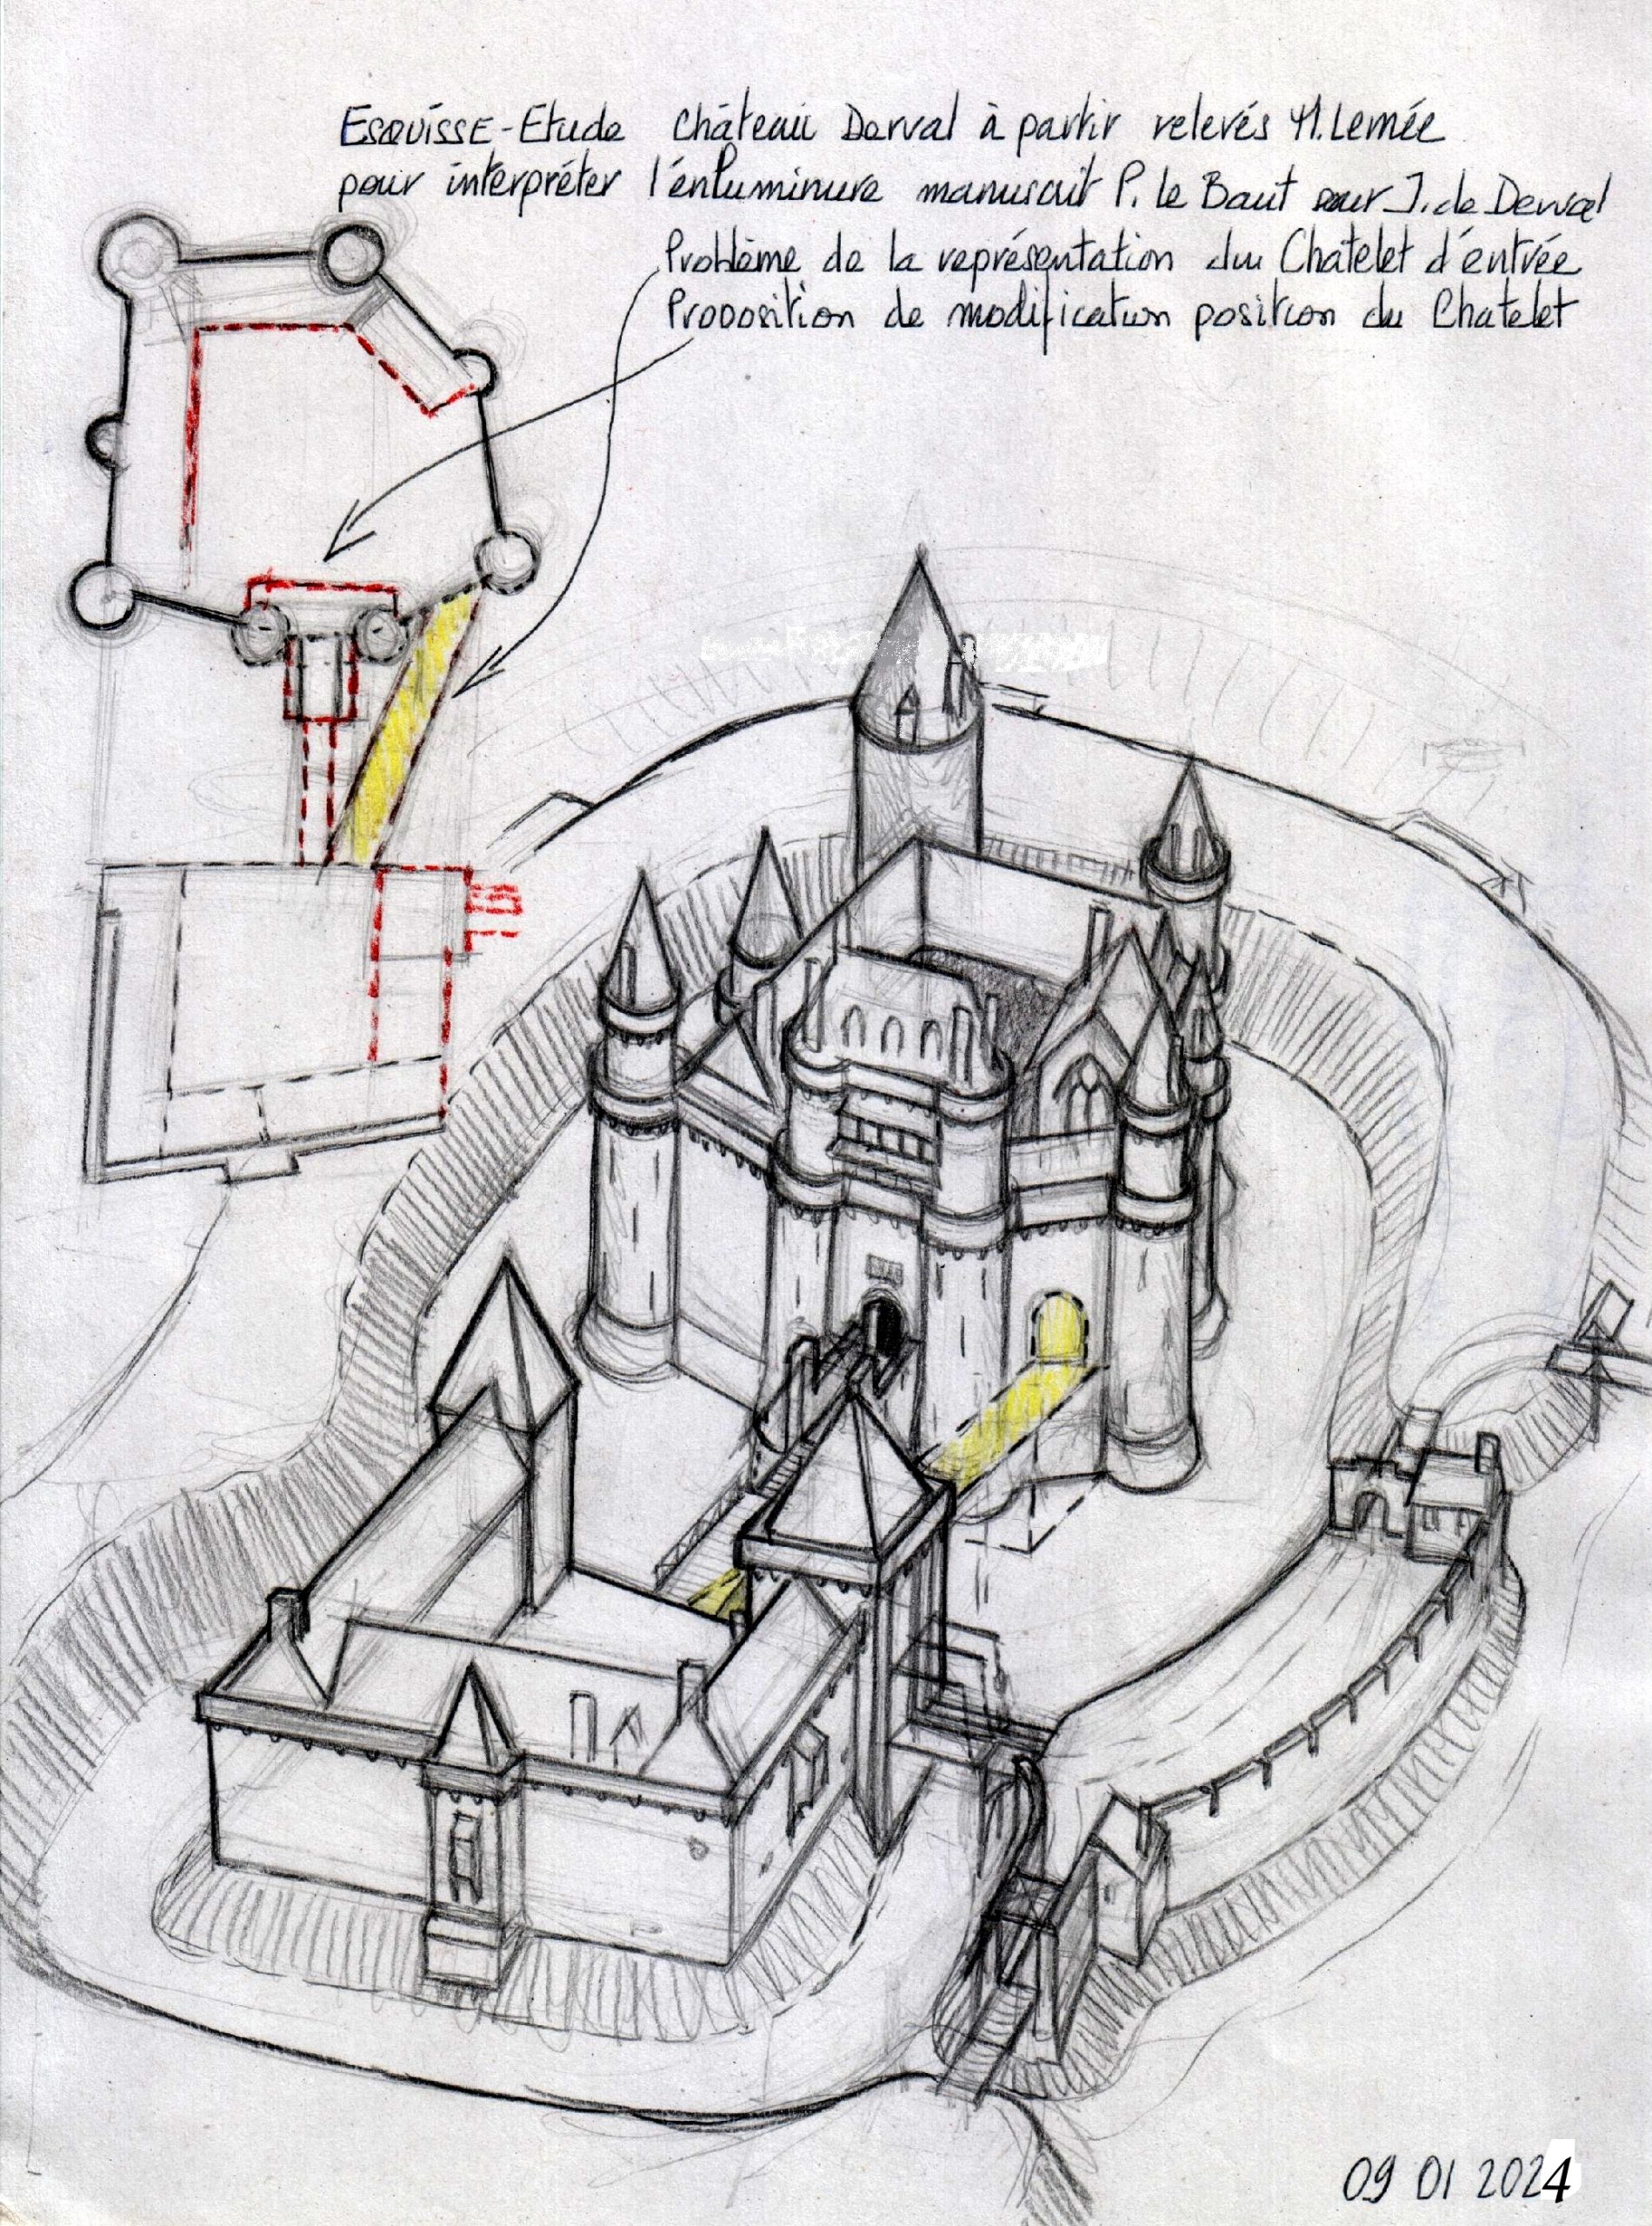 Esquisse-Etude Château Derval à partir relevés M. Lemée
pour interpréter l'enluminure manuscrit P. le Baut pour J. de Derval
Problème de la représentation du Chatelet d'entrée
Proposition de modification position du Chatelet
09 01 2024